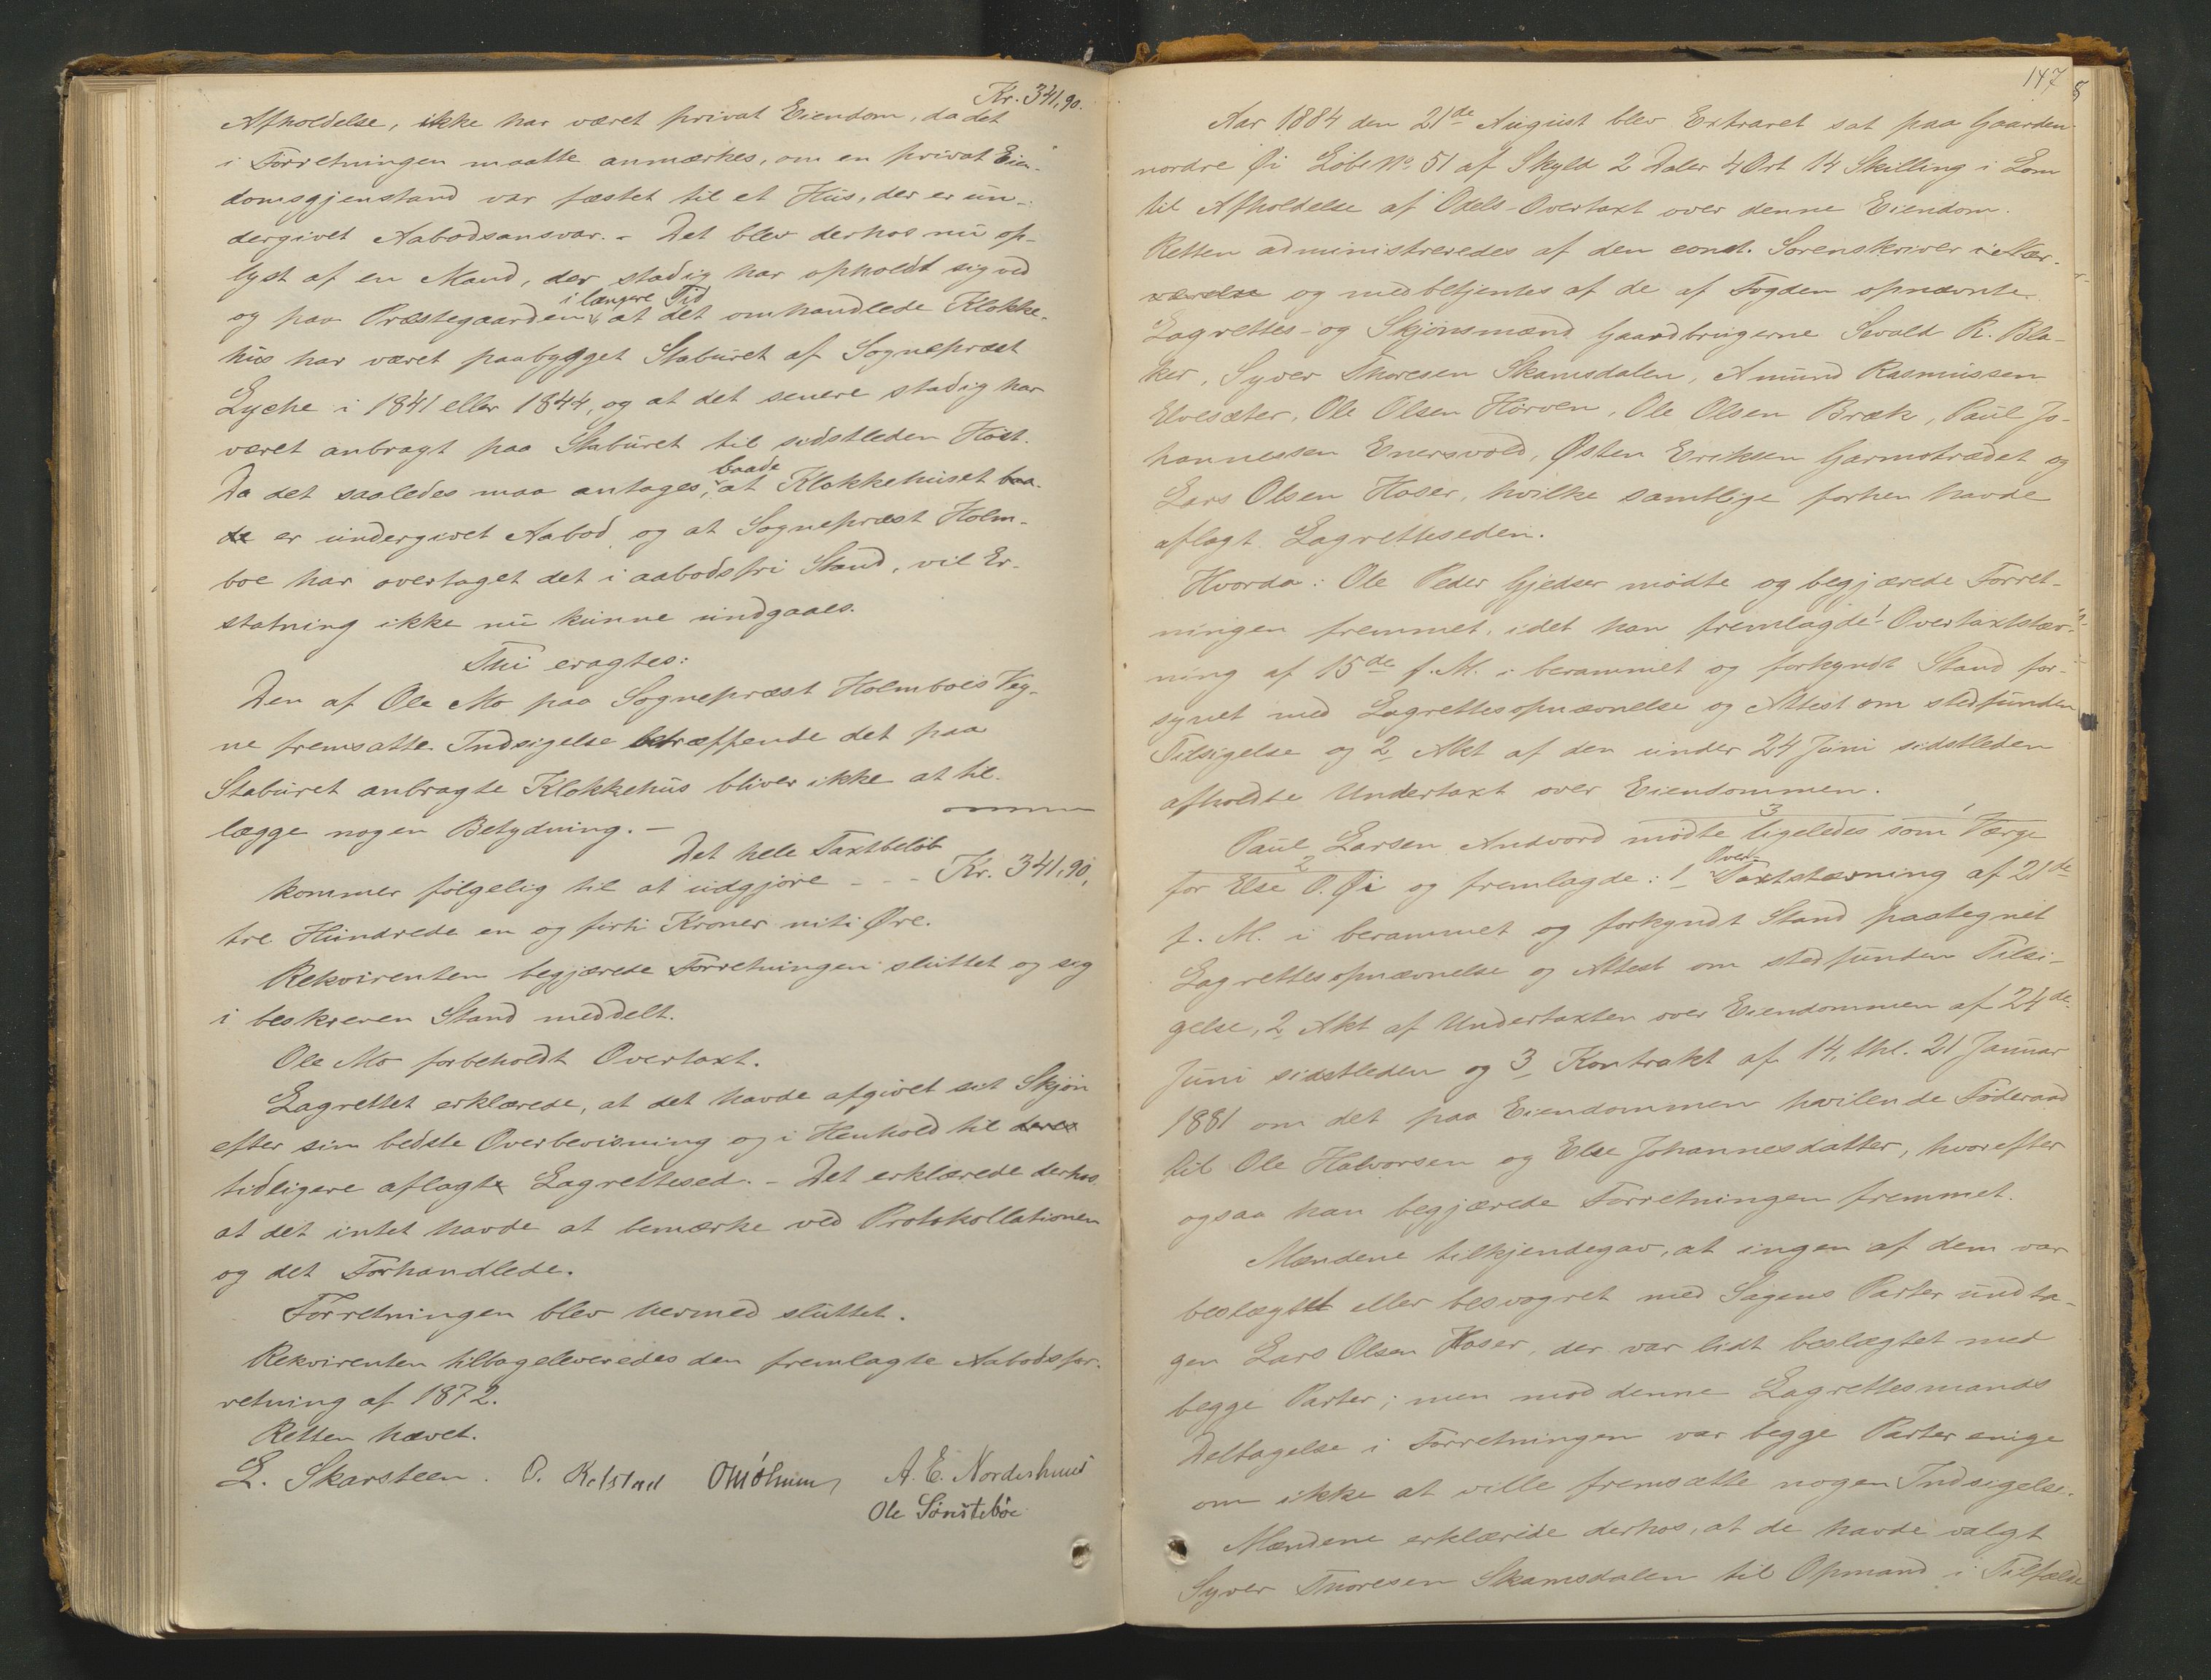 Kr. 341,90.
Afholdelse, ikke har været privat Eiendom, da det
i Forretningen maatte anmærkes, om en privat Eien-
domsgjenstand var fæstet til et Hus, der er un-
dergivet Aabodsansvar. – Det blev derhos nu op-
lyst af en Mand, der stadig har opholdt sig ved
og paa Præstegaarden i længere Tid, at det omhandlede Klokke-
hus har været paabygget Staburet af Sognepræst
Lyche i 1841 eller 1844, og at det senere stadig har
været anbragt paa Staburet til sidstleden Høst.
Da det saaledes maa antages, baade at Klokkehuset baa-
de er undergivet Aabod og at Sognepræst Holm-
boe har overtaget det i aabodsfri Stand, vil Er-
statning ikke nu kunne undgaaes.
Thi eragtes:
Den af Ole Mo paa Sognepræst Holmboes Veg-
ne fremsatte Indsigelse betræffende det paa
Staburet anbragte Klokkehus bliver ikke at til-
lægge nogen Betydning. –
Det hele Taxtbeløb
kommer følgelig til at udgjøre - - - Kr. 341,90,
tre Hundrede en og firti Kroner niti Øre.
Rekvirenten begjærede Forretningen sluttet og sig
i beskreven Stand meddelt.
Ole Mo forbeholdt Overtaxt.
Lagrettet erklærede, at det havde afgivet sit Skjøn
efter sin bedste Overbevisning og i Henhold til deres
tidligere aflagte Lagrettesed. – Det erklærede derhos,
at det intet havde at bemærke ved Protokollationen
og det Forhandlede.
Forretningen blev hermed sluttet.
Rekvirenten tilbageleveredes den fremlagte Aabodsfor-
retning af 1872.
Retten hævet.
L. Skarsteen. P. Kolstad A. E. Nordshuus
Ole Sønstebøe
147
Aar 1884 den 21de August blev Extraret sat paa Gaarden
nordre Øi Løbe No. 51 af Skyld 2 Daler 4 Ort 14 Skilling i Lom
til Afholdelse af Odels-Overtaxt over denne Eiendom.
Retten administreredes af den const. Sorenskriver i Nær-
værelse og medbetjentes af de af Fogden opnævnte
Lagrettes- og Skjønsmænd Gaardbrugerne Sevald R. Bla-
ker, Syver Thoresen Skamsdalen, Amund Rasmussen
Elvesæter, Ole Olsen Horven, Ole Olsen Bræk, Paul Jo-
hannessen Enersvold, Østen Eriksen Garmotrædet og
Lars Olsen Hoser, hvilke samtlige forhen havde
aflagt Lagretteseden.
Hvorda: Ole Peder Gjedser mødte og begjærede Forret-
ningen fremmet, idet han fremlagde 1 Overtaxtstæv-
ning af 15de f. M. i berammet og forkyndt Stand for-
synet med Lagrettesopnævnelse og Attest om stedfunden
Tilsigelse og 2 Akt af den under 24 Juni sidstleden
afholdte Undertaxt over Eiendommen.
Paul Larsen Andvord mødte 3 ligeledes som 1 Værge
for Else 2 O. Øi og fremlagde: 1 Over-Taxtstævning af 21de
f. M. i berammet og forkyndt Stand paategnet
Lagrettesopnævnelse og Attest om stedfunden Tilsi-
gelse, 2 Akt af Undertaxten over Eiendommen af 24de
Juni sidstleden og 3 Kontrakt af 14, thl. 21 Januar
1881 om det paa Eiendommen hvilende Føderaad
til Ole Halvorsen og Else Johannesdatter, hvorefter
ogsaa han begjærede Forretningen fremmet.
Mændene tilkjendegav, at ingen af dem var
beslægtet eller besvogret med Sagens Parter undta-
gen Lars Olsen Hoser, der var lidt beslægtet med
begge Parter; men mod denne Lagrettesmands
Deltagelse i Forretningen var begge Parter enige
om ikke at ville fremsætte nogen Indsigelse.
Mændene erklærede derhos, at de havde valgt
Syver Thoresen Skamsdalen til Opmand i Tilfælde